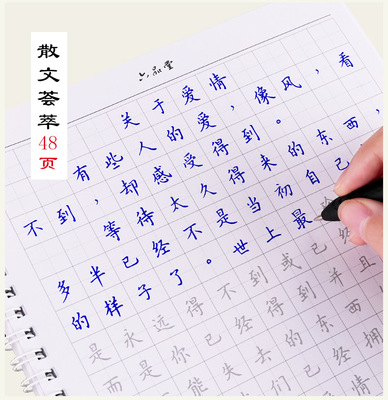 散文荟萃
48
页
六品堂
关于爱情
有些人的爱，像风，看
不到，却感受得到。
等待太久得来的东西，
多半已经不是当初自己
的样子了。世上最
是永远得不到或已经
而是你已经得到并且
能失去的东西
们已经拥